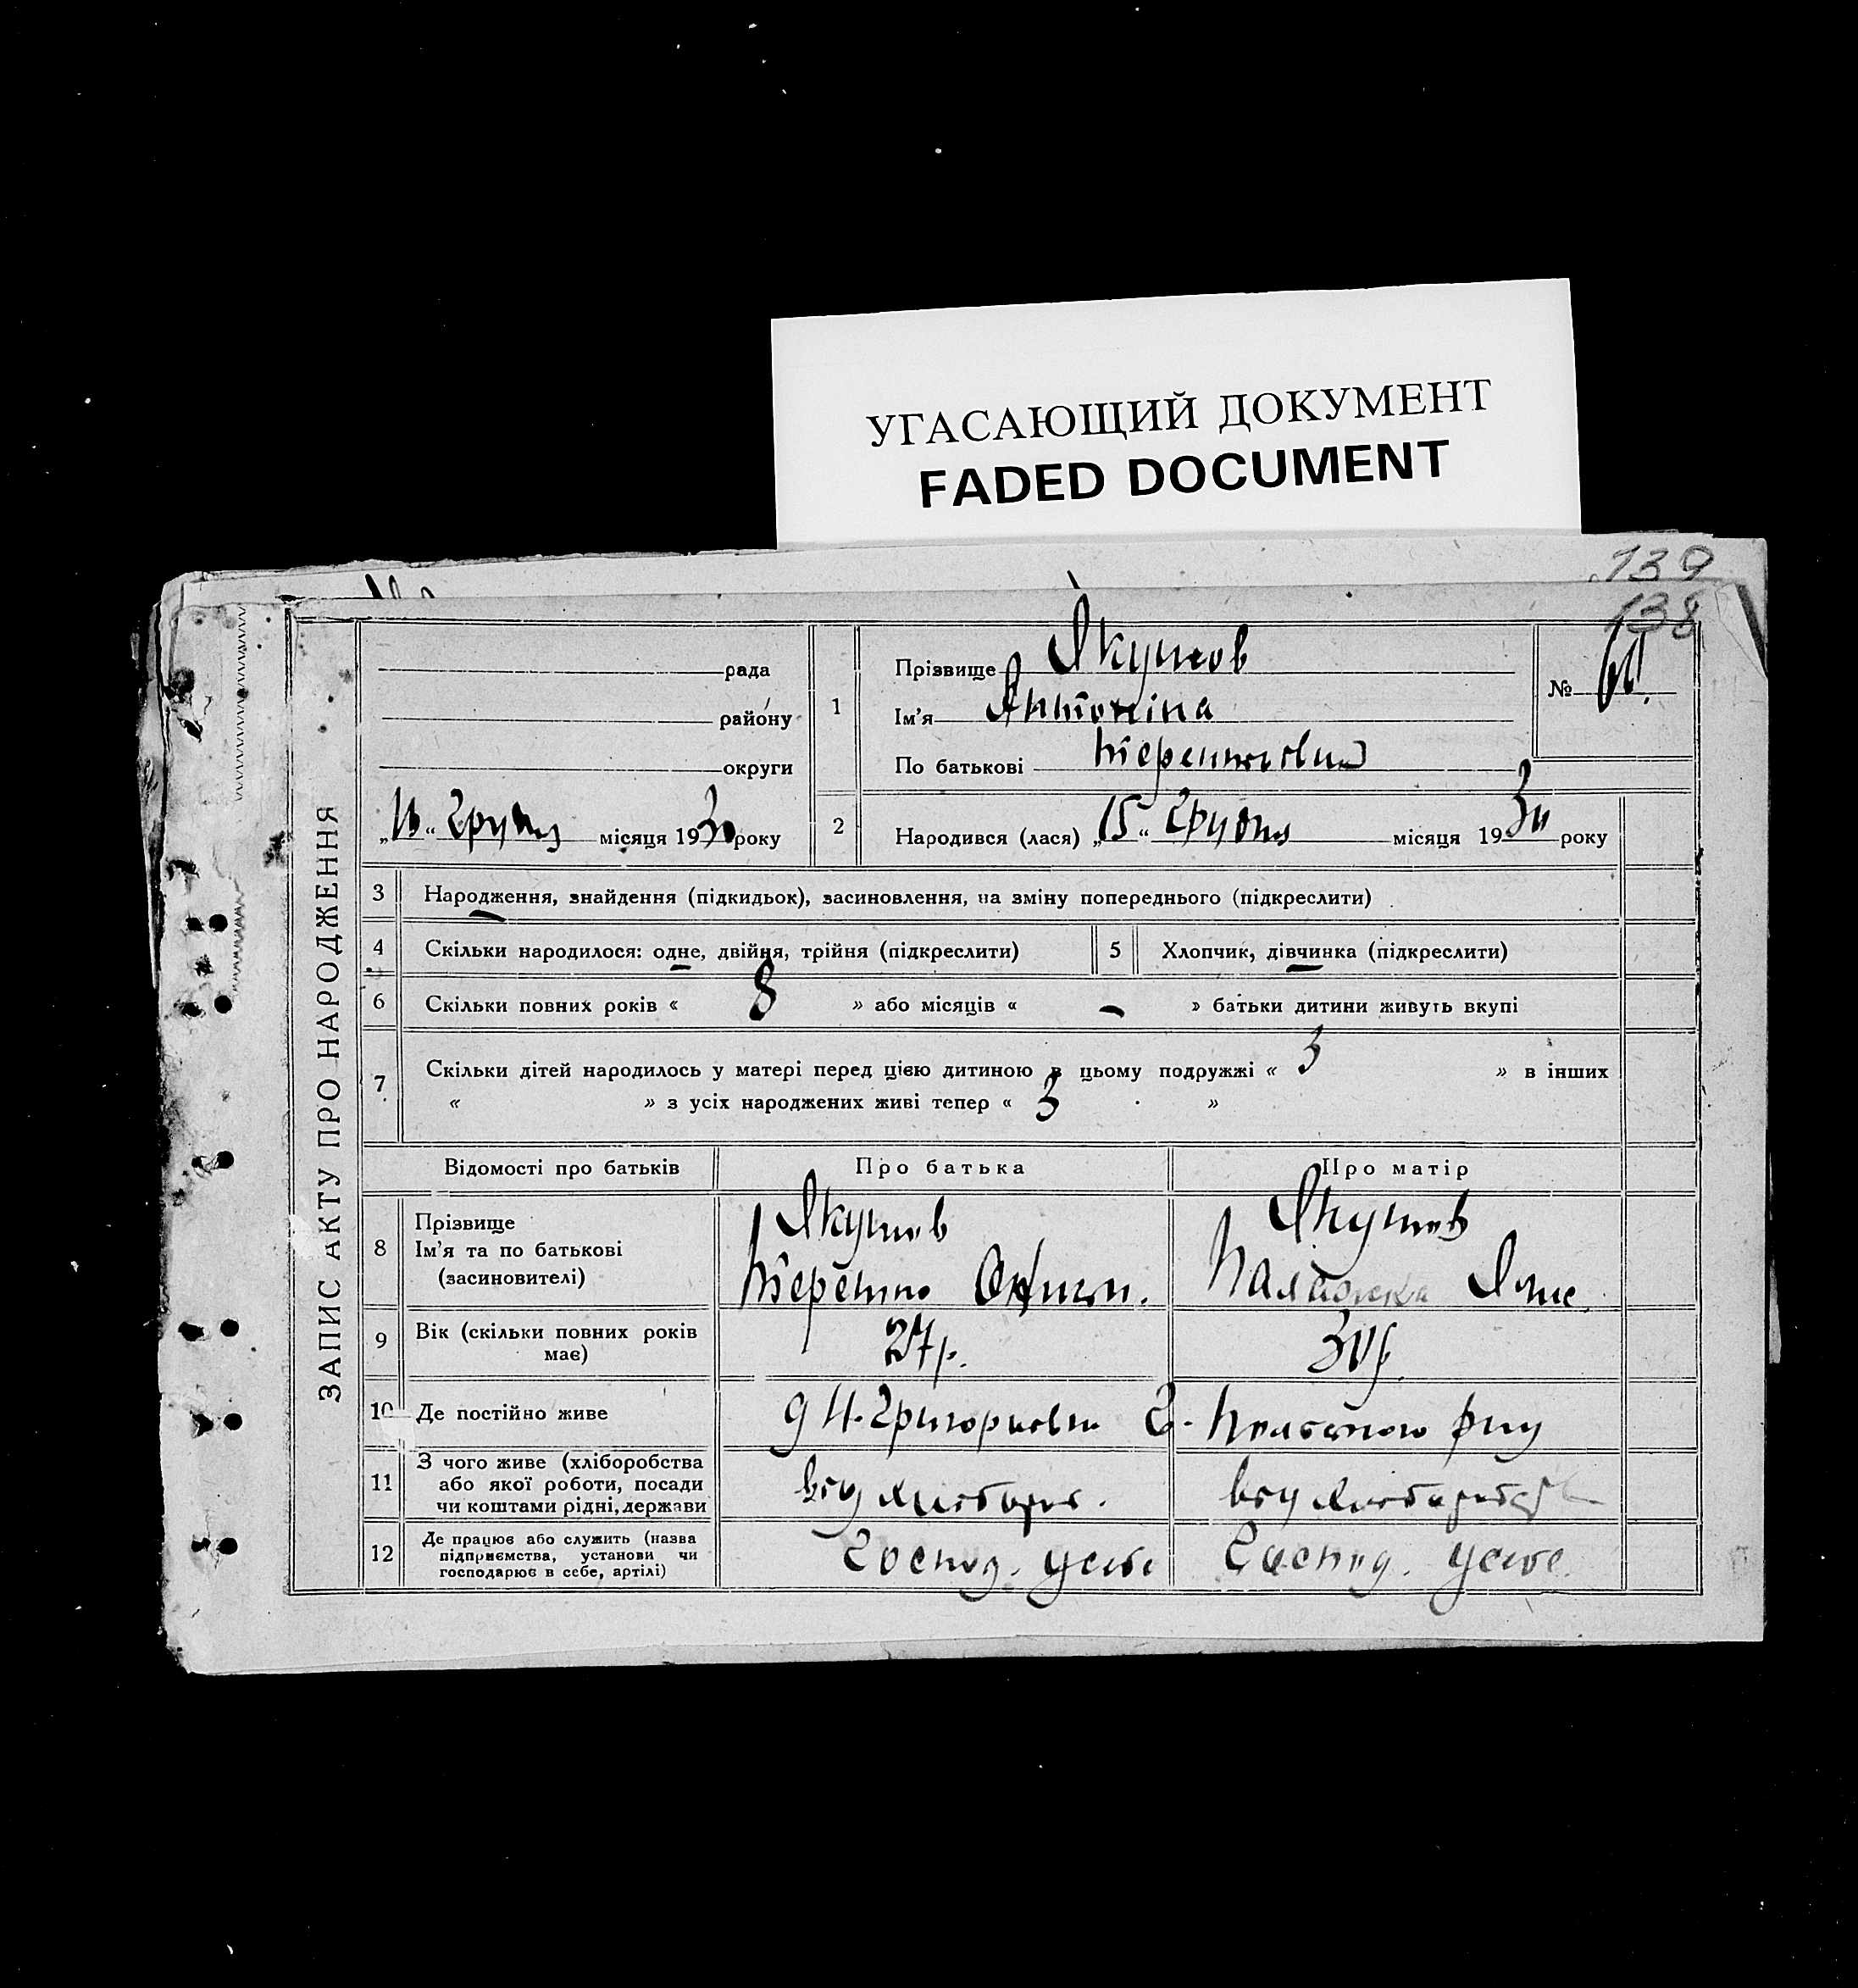 УГАСАЮЩИЙ ДОКУМЕНТ
FADED DOCUMENT
139
138
ЗАПИС АКТУ ПРО НАРОДЖЕННЯ
рада
району
округи
„ “ Грудня місяця 1930 року
1
Прізвище Якушов
Ім'я Антоніна
По батькові
№
2
Народився (лася) „15“ Грудня місяця 1930 року
3 Народження, знайдення (підкидьок), засиновлення, на зміну попереднього (підкреслити)
4 Скільки народилося: одне, двійня, трійня (підкреслити)
5 Хлопчик, дівчинка (підкреслити)
6 Скільки повних років « 8 » або місяців « – » батьки дитини живуть вкупі
7 Скільки дітей народилось у матері перед цією дитиною в цьому подружжі « 3 » в інших
« » з усіх народжених живі тепер « 3 »
Відомості про батьків
Про батька
Про матір
8
Прізвище
Ім'я та по батькові
(засиновителі)
Якушов
Якушов
9 Вік (скільки повних років
має)
27р.
30р.
10 Де постійно живе
11
З чого живе (хліборобства
або якої роботи, посади
чи коштами рідні, держави
12
Де працює або служить (назва
підприємства, установи чи
господарює в себе, артілі)
Господ. у себе
Господ. у себе